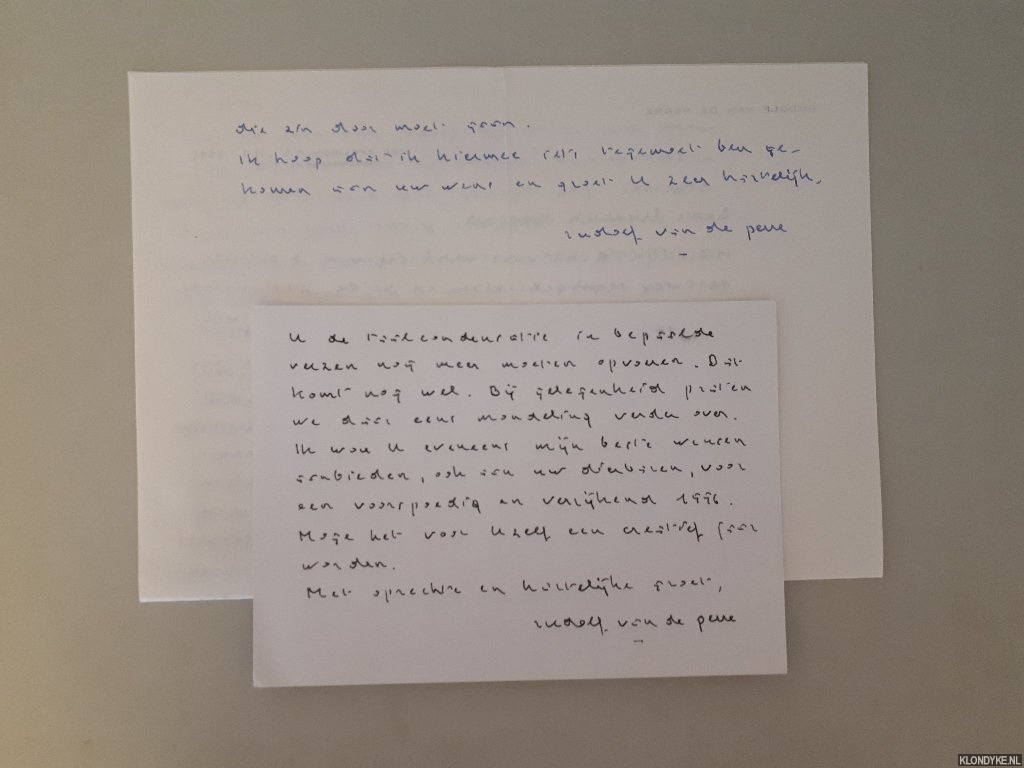 die zin door moet gaan.
Ik hoop dat ik hiermee iets tegemoet ben ge-
komen aan uw wens en groet U zeer hartelijk,
rudolf van de perre
U de taalcondensatie in bepaalde
verzen nog meer moeten opvoeren. Dat
komt nog wel. Bij gelegenheid praten
we daar eens mondeling verder over.
Ik wou U eveneens mijn beste wensen
aanbieden, ook aan uw dierbaren, voor
een voorspoedig en verrijkend 1996.
Moge het voor Uzelf een creatief jaar
worden.
Met oprechte en hartelijke groet,
rudolf van de perre
KLONDYKE.NL